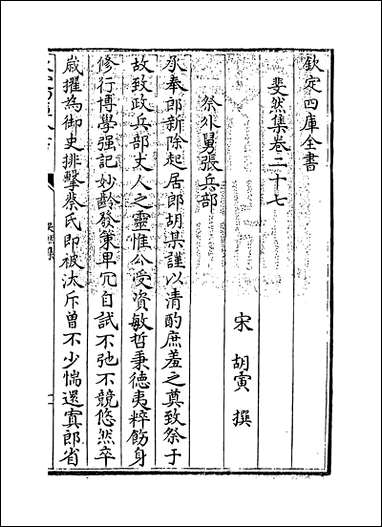 欽定四庫全書
斐然集卷二十七
宋 胡寅 撰
祭外舅張兵部
承奉郎新除起居郎胡某謹以清酌庶羞之奠致祭于
故致政兵部丈人之靈惟公受資敏哲秉德夷粹飭身
修行博學强記妙齡發策卑冗自試不弛不競悠然卒
歳擢為御史排擊蔡氏即被汰斥曽不少惴還寘郎省